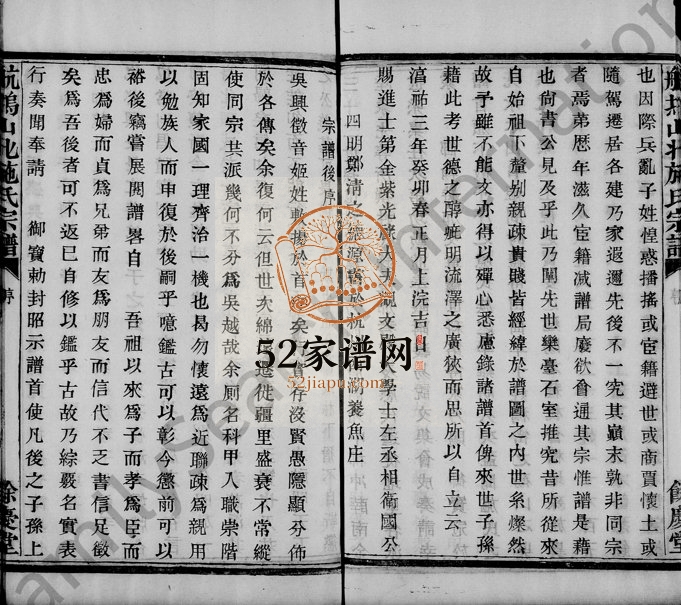 也因際兵亂子姓惶惑播搖或宦籍避世或南賈懷土或
隨駕遷居各建乃家遐邇先後不一究其巔末孰非同宗
者焉弟歷年滋久宦籍減譜局廢欲會通其宗惟譜是藉
也尙書公見及乎此乃闡先世欒臺石室推究昔所從來
自始祖下釐别親疎貴賤皆經緯於譜圖之內世系燦然
故予雖不能文亦得以殫心悉慮錄諸譜首俾來世子孫
藉此考世德之醇疵明流澤之廣狹而思所以自立云
滈祐三年癸卯春正月上浣吉
賜進士第金紫光 大夫 文 大學士左丞相衛國公
四明鄭清之 源 於杭 湖養魚庄
宗譜後序
吳興徵音姬姓 揚於首 矣 存沒賢愚隱顯分佈
於各傳矣余復何云但世次綿 遷徙疆里盛衰不常縱
使同宗共派幾何不分爲吳越哉余厠名科甲入職崇階
固知家國一理齊治一機也曷勿懷遠爲近聯疎爲親用
以勉族人而申復於後嗣乎噫鑑古可以彰今懲前可以
裕後竊嘗展閱譜畧自 吾祖以來爲子而孝爲臣而
忠爲婦而貞爲兄弟而友爲朋友而信代不乏書信足徵
矣爲吾後者可不返已自修以鑑乎古故乃綜覈名實表
行奏聞奉請 御寶勅封昭示譜首使凡後之子孫上
航塢山北施氏宗譜
餘慶堂
航塢山北施氏宗譜
餘慶堂
52家谱网
52jiapu.com